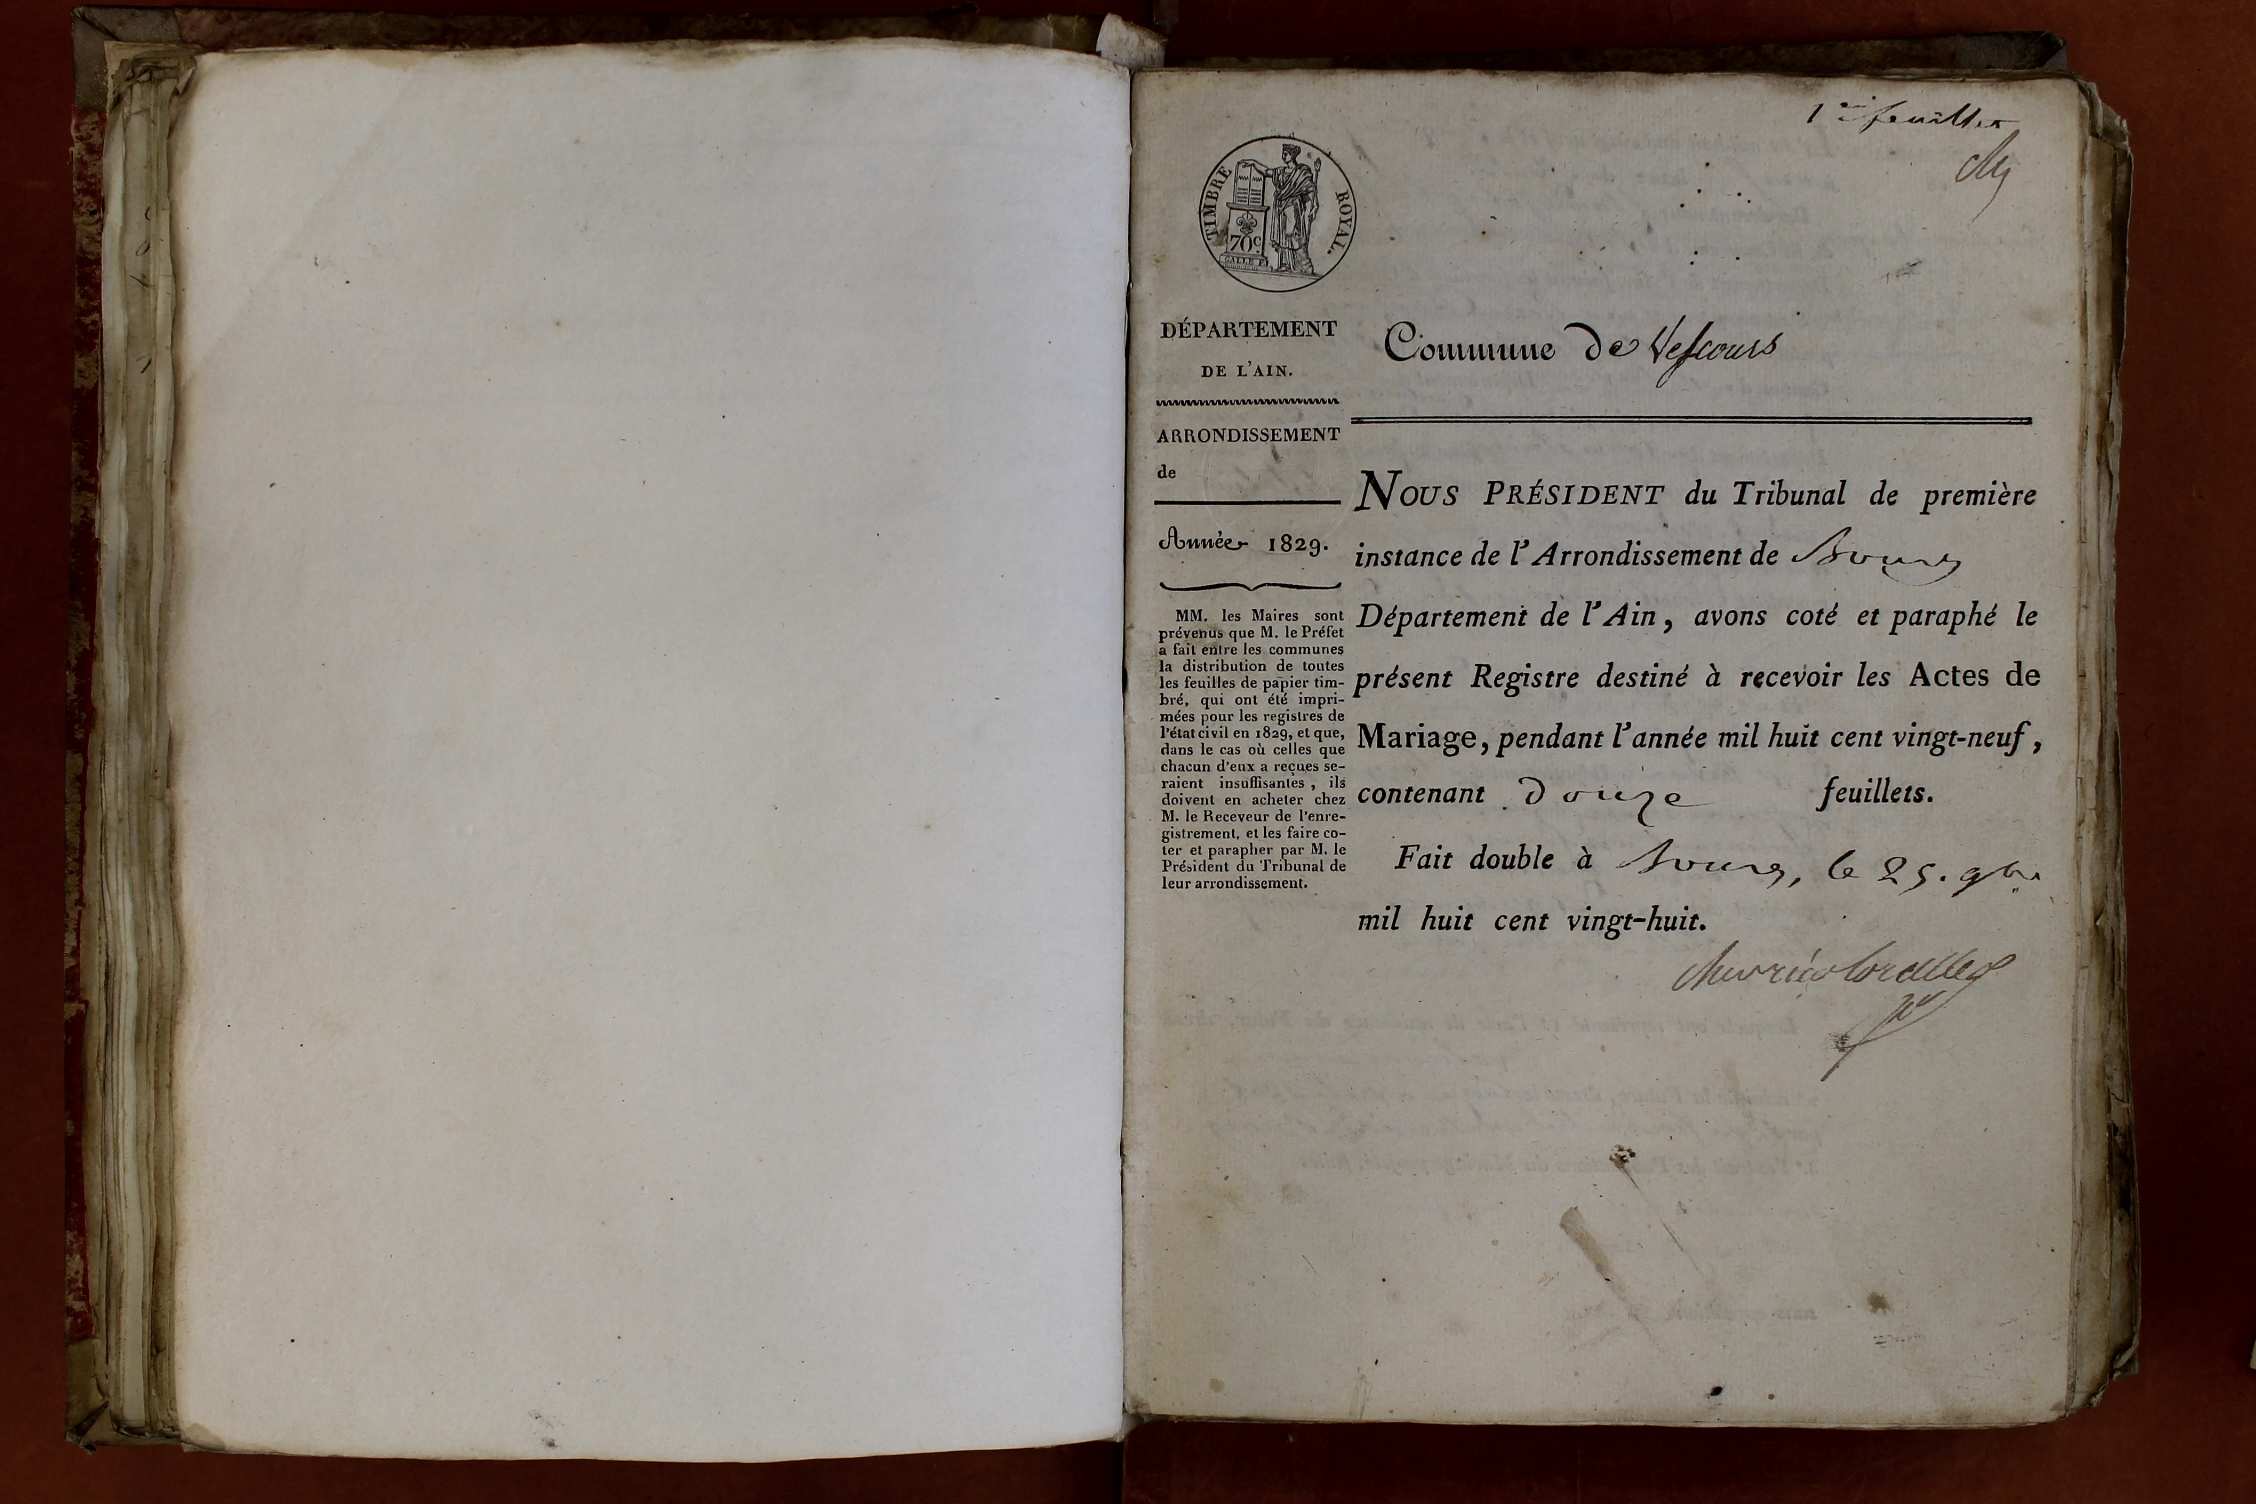 1er feuillet
TIMBRE ROYAL.
70c
DÉPARTEMENT
DE L'AIN.
ARRONDISSEMENT
de
Année 1829.
MM. les Maires sont
prévenus que M. le Préfet
a fait entre les communes
la distribution de toutes
les feuilles de papier tim-
bré, qui ont été impri-
mées pour les registres de
l'état civil en 1829, et que,
dans le cas où celles que
chacun d'eux a reçues se-
raient insuffisantes, ils
doivent en acheter chez
M. le Receveur de l'enre-
gistrement, et les faire co-
ter et parapher par M. le
Président du Tribunal de
leur arrondissement.
Commune de Vescours
NOUS PRÉSIDENT du Tribunal de première
instance de l'Arrondissement de Bourg
Département de l'Ain, avons coté et paraphé le
présent Registre destiné à recevoir les Actes de
Mariage, pendant l'année mil huit cent vingt-neuf,
contenant douze feuillets.
Fait double à Bourg, le 25. 9bre
mil huit cent vingt-huit.